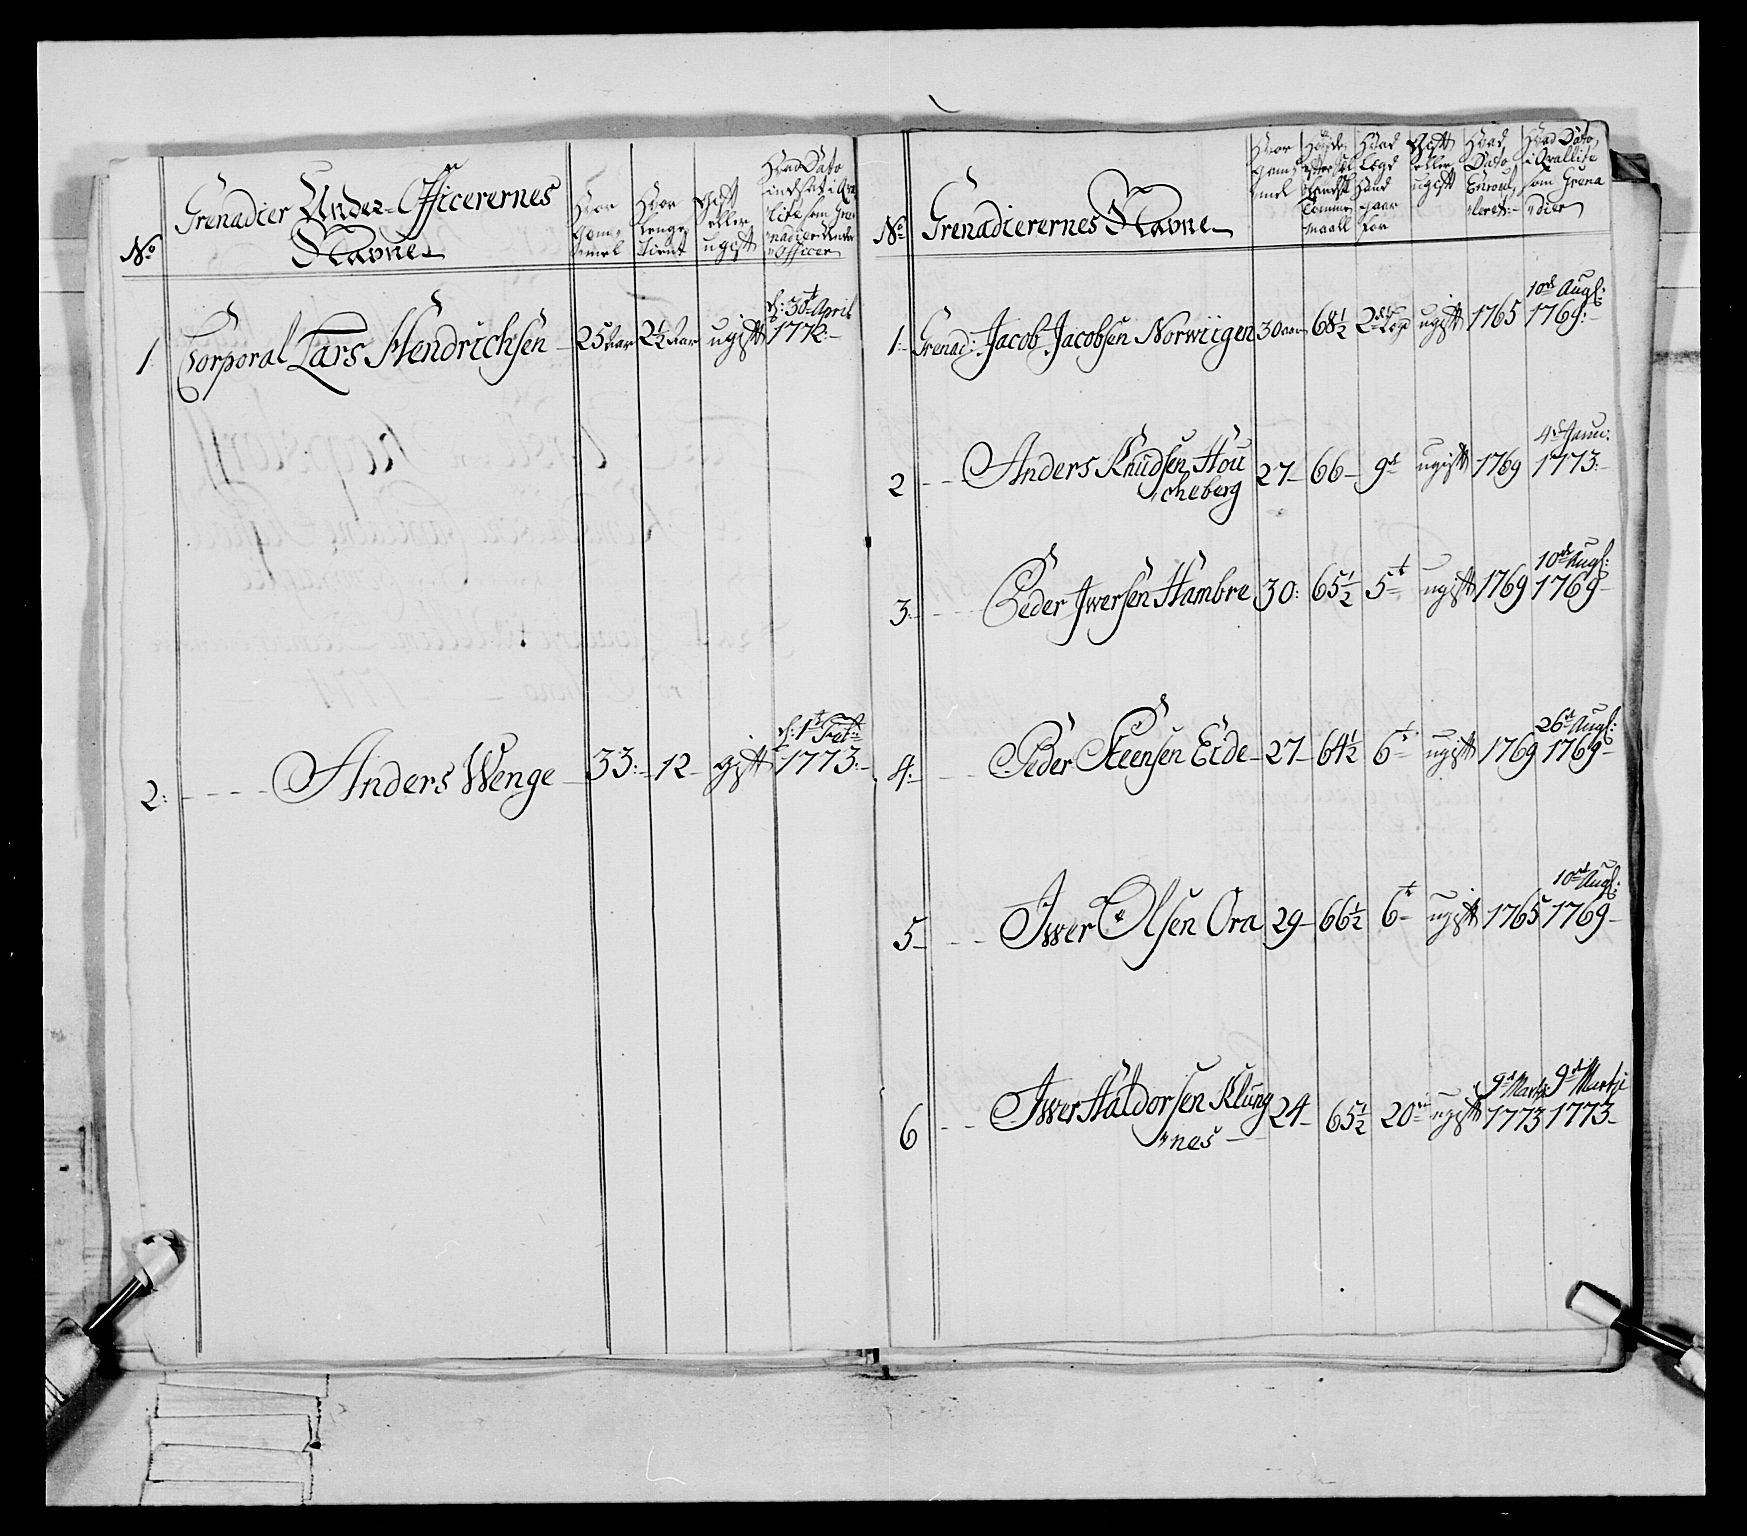 No
Grenadier Under-Officerernes
Navne
Hvor
gam-
mel
Hvor
lenge
tient
Gift
eller
ugift
Hvad Dato
indsat i Qva-
lite som Gre-
nadeer Under
Officer
1. Corporal Lars Hendrichsen 25 Aar 2½ Aar ugift d: 30te April
1772.
2. Anders Wenge 33. 12 gift d: 1te Febr:
1773.
No
Grenadierernes Navne
Hvor
gam-
mel
Høyden
efter
Tomme
maall
Hvad
Lægd
hand
gaar
for
Gift
eller
ugift
Hvad
Dato
Enroul-
leret
Hvad Dato
i Qvallite
som Grena
dier
1. Grenad: Jacob Jacobsen Norwiigen 30 aar 68½ 2den Læg ugift 1765 10de Augs:
1769.
2 Anders Knudsen Hou
cheberg 27 66 9de ugift 1769 4de Janu:
1773.
3. Peder Iwersen Hambre 30: 65½ 5te ugift 1769 10de Augs:
1769
4. Peder Steensen Eide 27 64½ 6te ugift 1769 26de Augs:
1769
5 Iwer Olsen Ora 29 66½ 6te ugift 1765 10de Augs:
1769
6 Iwer Haldorsen Klung
nes 24 65½ 20de ugift 9de Martji
1773 9de Martji
1773